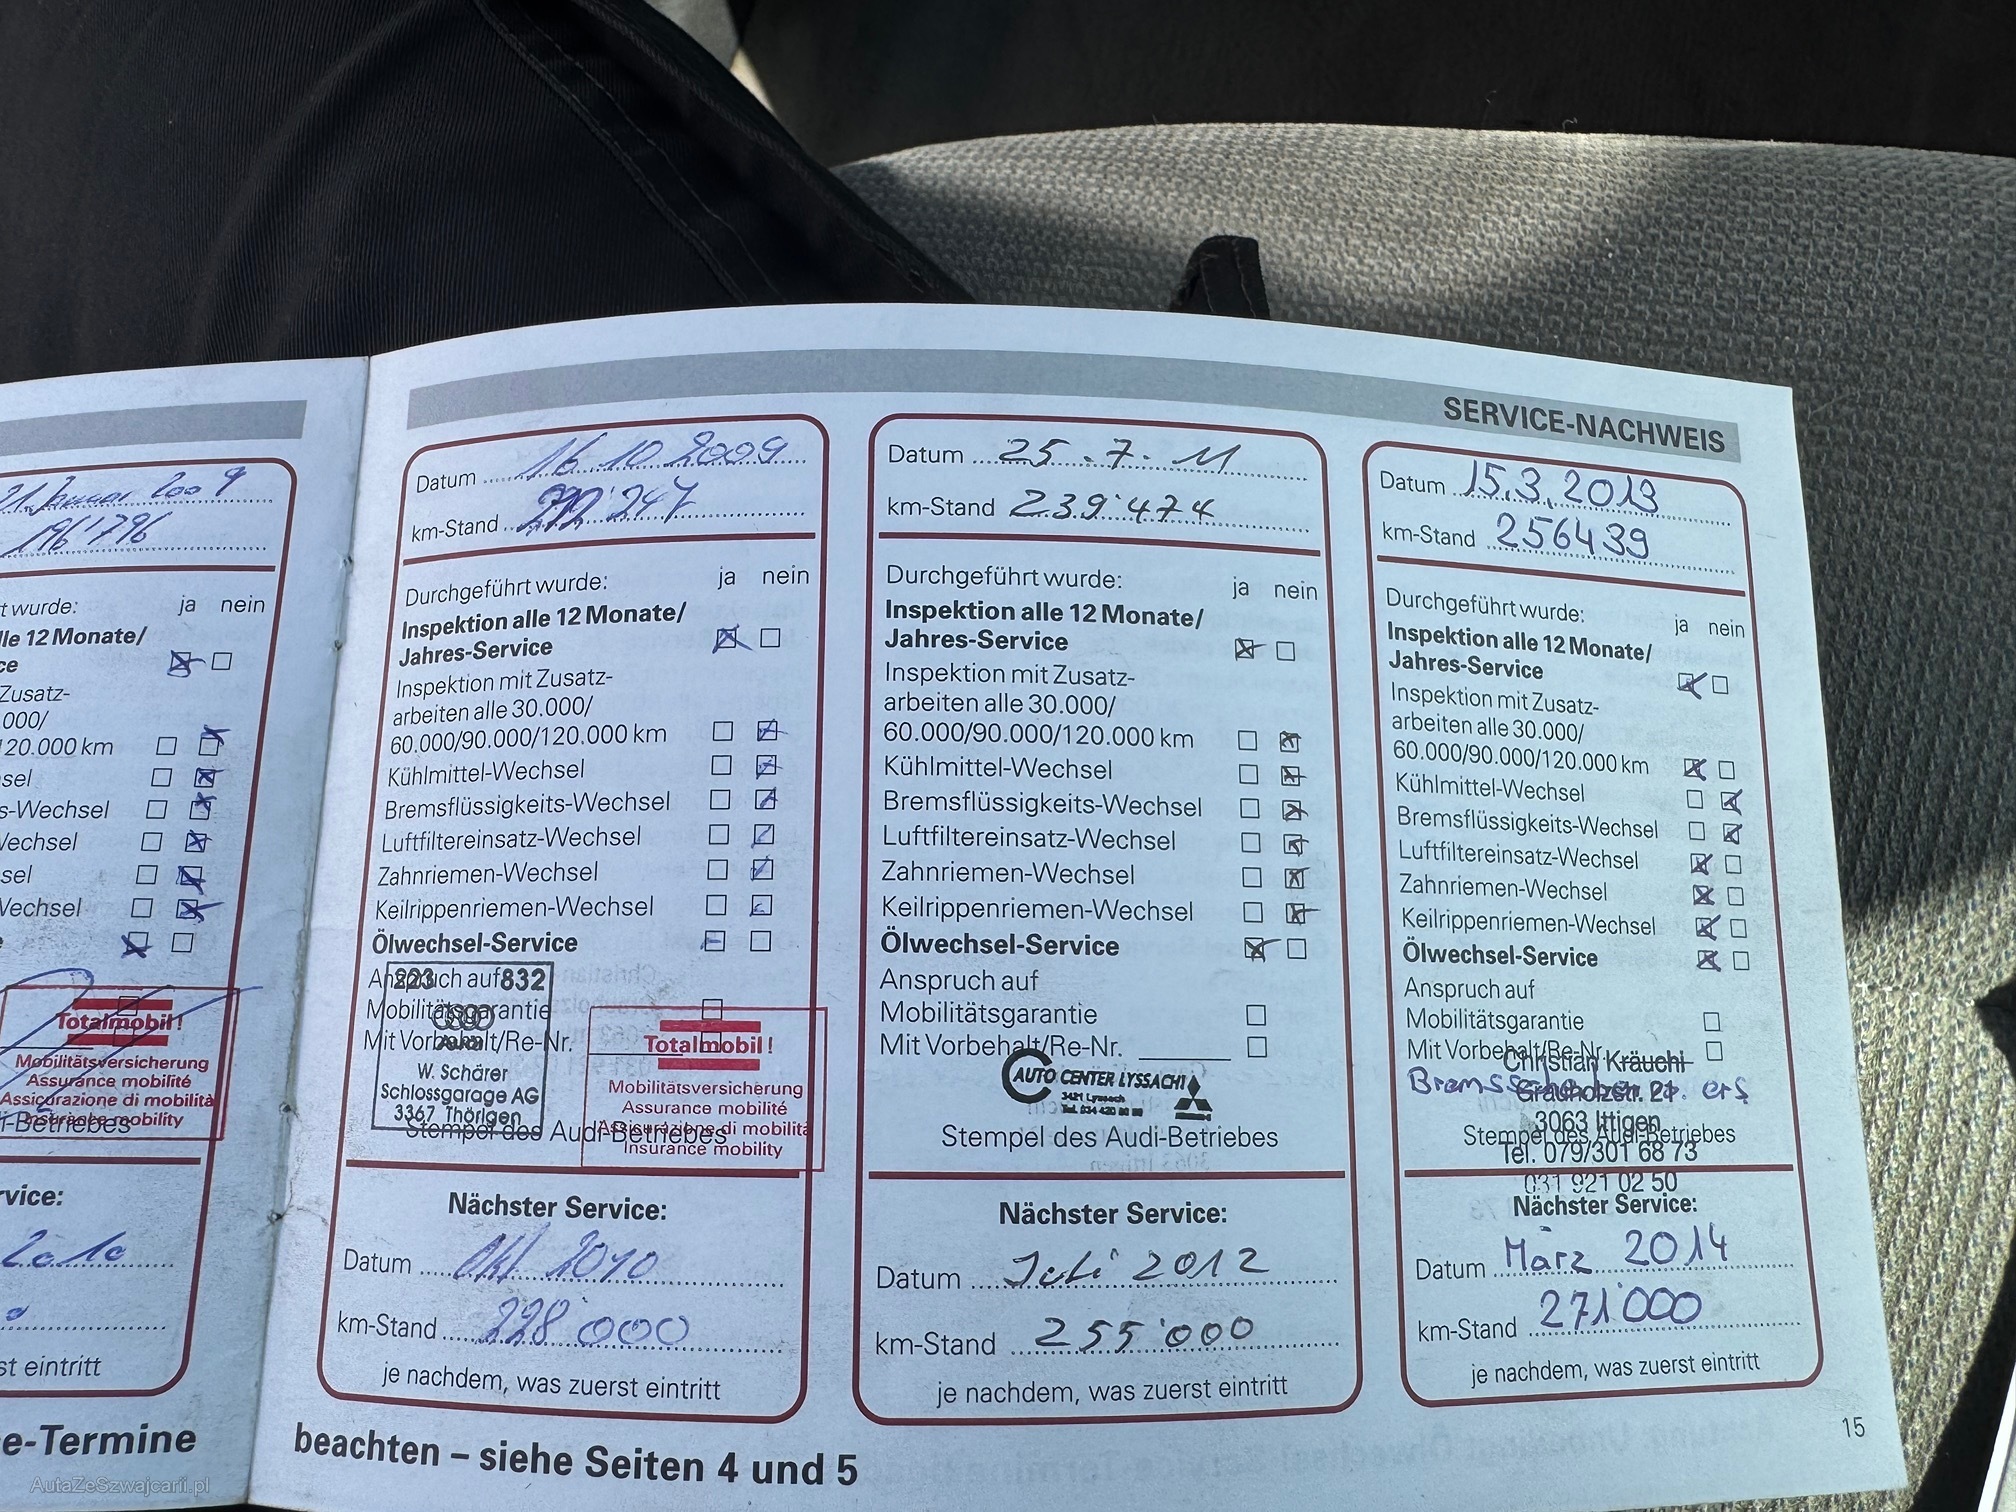 SERVICE-NACHWEIS
21. Januar 2009
196'796
t wurde: ja nein
lle 12 Monate/
ce
Zusatz-
.000/
120.000 km
sel
s-Wechsel
Wechsel
sel
Wechsel
e
Totalmobil!
Mobilitätsversicherung
Assurance mobilité
Assicurazione di mobilità
Insurance mobility
i-Betriebes
rvice:
2010
st eintritt
e-Termine
Datum 16.10.2009
km-Stand 212'247
Durchgeführt wurde: ja nein
Inspektion alle 12 Monate/
Jahres-Service
Inspektion mit Zusatz-
arbeiten alle 30.000/
60.000/90.000/120.000 km
Kühlmittel-Wechsel
Bremsflüssigkeits-Wechsel
Luftfiltereinsatz-Wechsel
Zahnriemen-Wechsel
Keilrippenriemen-Wechsel
Ölwechsel-Service
Anspruch auf
Mobilitätsgarantie
Mit Vorbehalt/Re-Nr.
223 832
Audi
W. Schärer
Schlossgarage AG
3367 Thörigen
Totalmobil!
Mobilitätsversicherung
Assurance mobilité
Assicurazione di mobilità
Insurance mobility
Stempel des Audi-Betriebes
Nächster Service:
Datum Okt 2010
km-Stand 228'000
je nachdem, was zuerst eintritt
Datum 25.7.11
km-Stand 239'474
Durchgeführt wurde: ja nein
Inspektion alle 12 Monate/
Jahres-Service
Inspektion mit Zusatz-
arbeiten alle 30.000/
60.000/90.000/120.000 km
Kühlmittel-Wechsel
Bremsflüssigkeits-Wechsel
Luftfiltereinsatz-Wechsel
Zahnriemen-Wechsel
Keilrippenriemen-Wechsel
Ölwechsel-Service
Anspruch auf
Mobilitätsgarantie
Mit Vorbehalt/Re-Nr.
AUTO CENTER LYSSACH
3421 Lyssach
Stempel des Audi-Betriebes
Nächster Service:
Datum Juli 2012
km-Stand 255'000
je nachdem, was zuerst eintritt
Datum 15.3.2013
km-Stand 256439
Durchgeführt wurde: ja nein
Inspektion alle 12 Monate/
Jahres-Service
Inspektion mit Zusatz-
arbeiten alle 30.000/
60.000/90.000/120.000 km
Kühlmittel-Wechsel
Bremsflüssigkeits-Wechsel
Luftfiltereinsatz-Wechsel
Zahnriemen-Wechsel
Keilrippenriemen-Wechsel
Ölwechsel-Service
Anspruch auf
Mobilitätsgarantie
Mit Vorbehalt/Re-Nr.
Christian Kräuchi
Grauholzstr. 21
3063 Ittigen
Stempel des Audi-Betriebes
Tel. 079/301 68 73
031 921 02 50
Nächster Service:
Datum März 2014
km-Stand 271'000
je nachdem, was zuerst eintritt
beachten – siehe Seiten 4 und 5
15
AutaZeSzwajcarii.pl